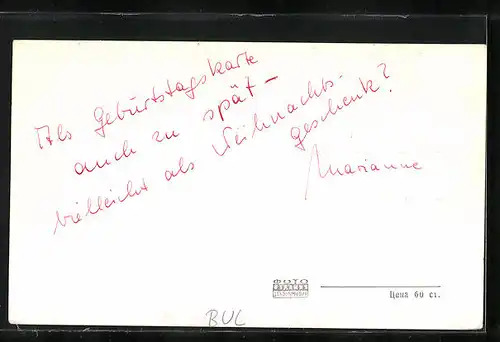 Als Geburtstagskarte
auch zu spät –
vielleicht als Weihnachts-
geschenk?
Marianne
ФОТО
Цена 60 ст.
BUL